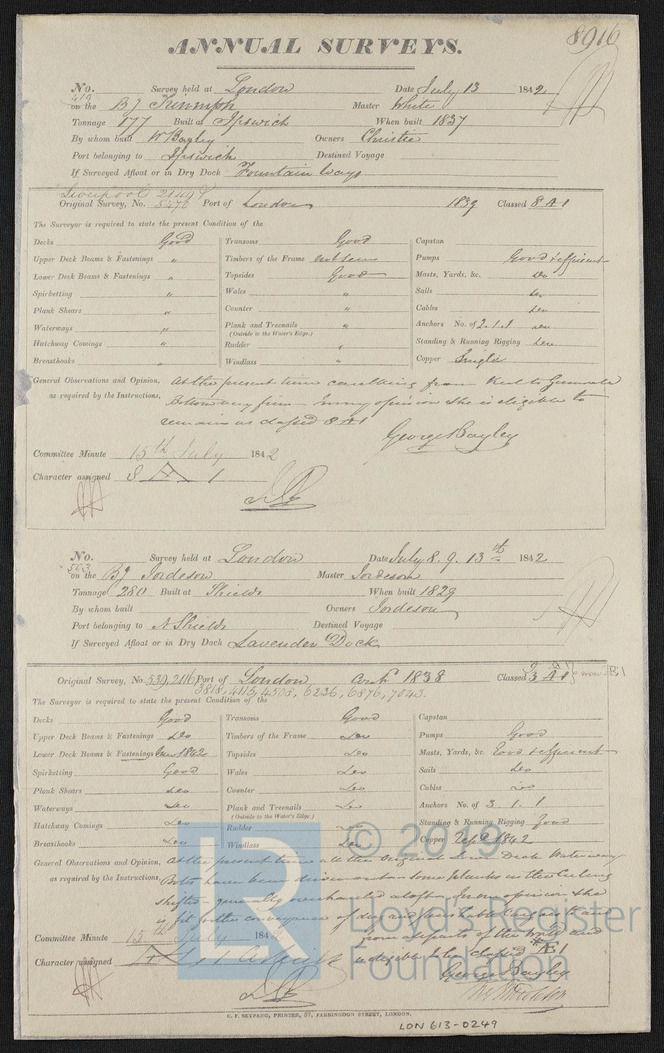 8916
ANNUAL SURVEYS.
No. 419 Survey held at London Date July 13 1842
on the Bg Triumph Master White
Tonnage 177 Built at Ipswich When built 1837
By whom built W Bayley Owners Christie
Port belonging to Ipswich Destined Voyage
If Surveyed Afloat or in Dry Dock Fountain Ways
Liverpool
Original Survey, No. 5470 Port of London 1839 Classed 8 A 1
The Surveyor is required to state the present Condition of the
Decks Good Transoms Good Capstan
Upper Deck Beams & Fastenings " Timbers of the Frame not seen Pumps Good & efficient
Lower Deck Beams & Fastenings " Topsides Good Masts, Yards, &c. Do
Spirketting " Wales " Sails Do
Plank Shears " Counter " Cables Do
Waterways " Plank and Treenails " Anchors No. of 2.1.1 Do
(Outside to the Water's Edge.)
Hatchway Comings " Rudder " Standing & Running Rigging Do
Breasthooks " Windlass " Copper
General Observations and Opinion, At the present time caulking from Keel to Gunwale
as required by the Instructions, Bottom very firm In my opinion she is eligible to
remain as classed 8 A 1
George Bayley
Committee Minute 15th July 1842
Character assigned 8 A 1
No. 563 Survey held at London Date July 8. 9. 13th 1842
on the Bg Jordeson Master Jordeson
Tonnage 280 Built at Shields When built 1829
By whom built Owners Jordeson
Port belonging to N Shields Destined Voyage
If Surveyed Afloat or in Dry Dock Lavender Dock
Original Survey, No. 539, 2116 Port of London 1838 Classed Æ 1
3818, 4115, 4508, 6236, 6876, 7043.
The Surveyor is required to state the present Condition of the
Decks Good Transoms Good Capstan
Upper Deck Beams & Fastenings Do Timbers of the Frame Do Pumps Good
Lower Deck Beams & Fastenings 1842 Topsides Do Masts, Yards, &c. Good & efficient
Spirketting Good Wales Do Sails Do
Plank Shears Do Counter Do Cables Do
Waterways Do Plank and Treenails Do Anchors No. of 3.1.1
(Outside to the Water's Edge.)
Hatchway Comings Do Rudder Do Standing & Running Rigging Good
Breasthooks Do Windlass Do Copper 1842
General Observations and Opinion, At the present time all the original Lower Deck Waterway
as required by the Instructions, Bolts have been driven out some planks in the Ceiling
shifted generally In my opinion she
is fit for the conveyance of dry and perishable cargoes to and
from all parts of the world and
Committee Minute 15th July 1842
is eligible to be classed *Æ 1
Character assigned
George Bayley
C. F. SEYFANG, PRINTER, 57, FARRINGDON STREET, LONDON.
LON 613-0249
LR © 2019
Lloyd's Register
Foundation